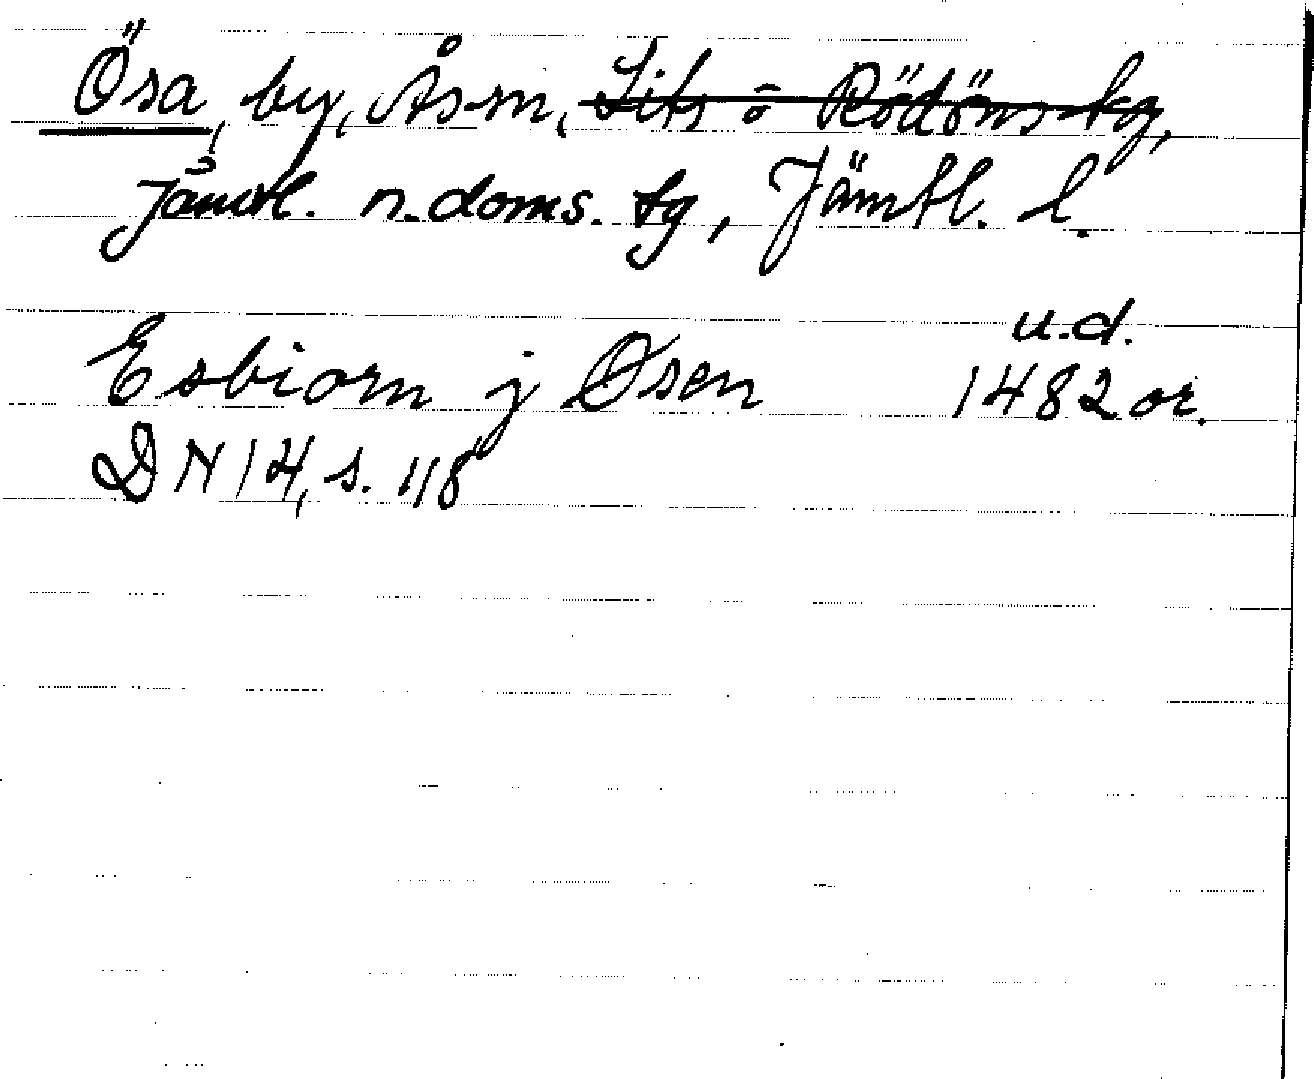 Ösa, by, Ås sn, Lits o Rödöns tg,
Jämtl. n. doms. tg, Jämtl. l.
u.d.
Esbiorn j Øsen 1482 or.
DN 14, s. 118